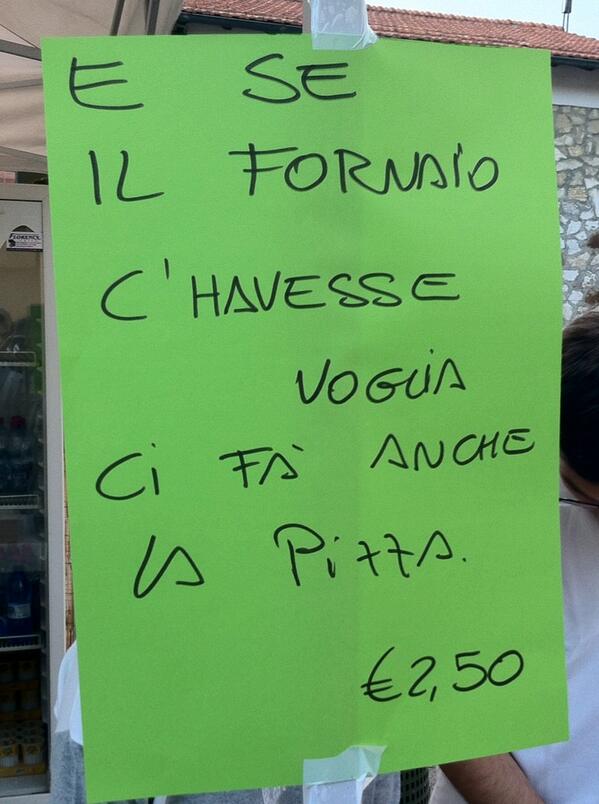 E SE
IL FORNAIO
C'HAVESSE
VOGLIA
Ci FÀ ANCHE
LA PiZZA.
€2,50
FLORENCE